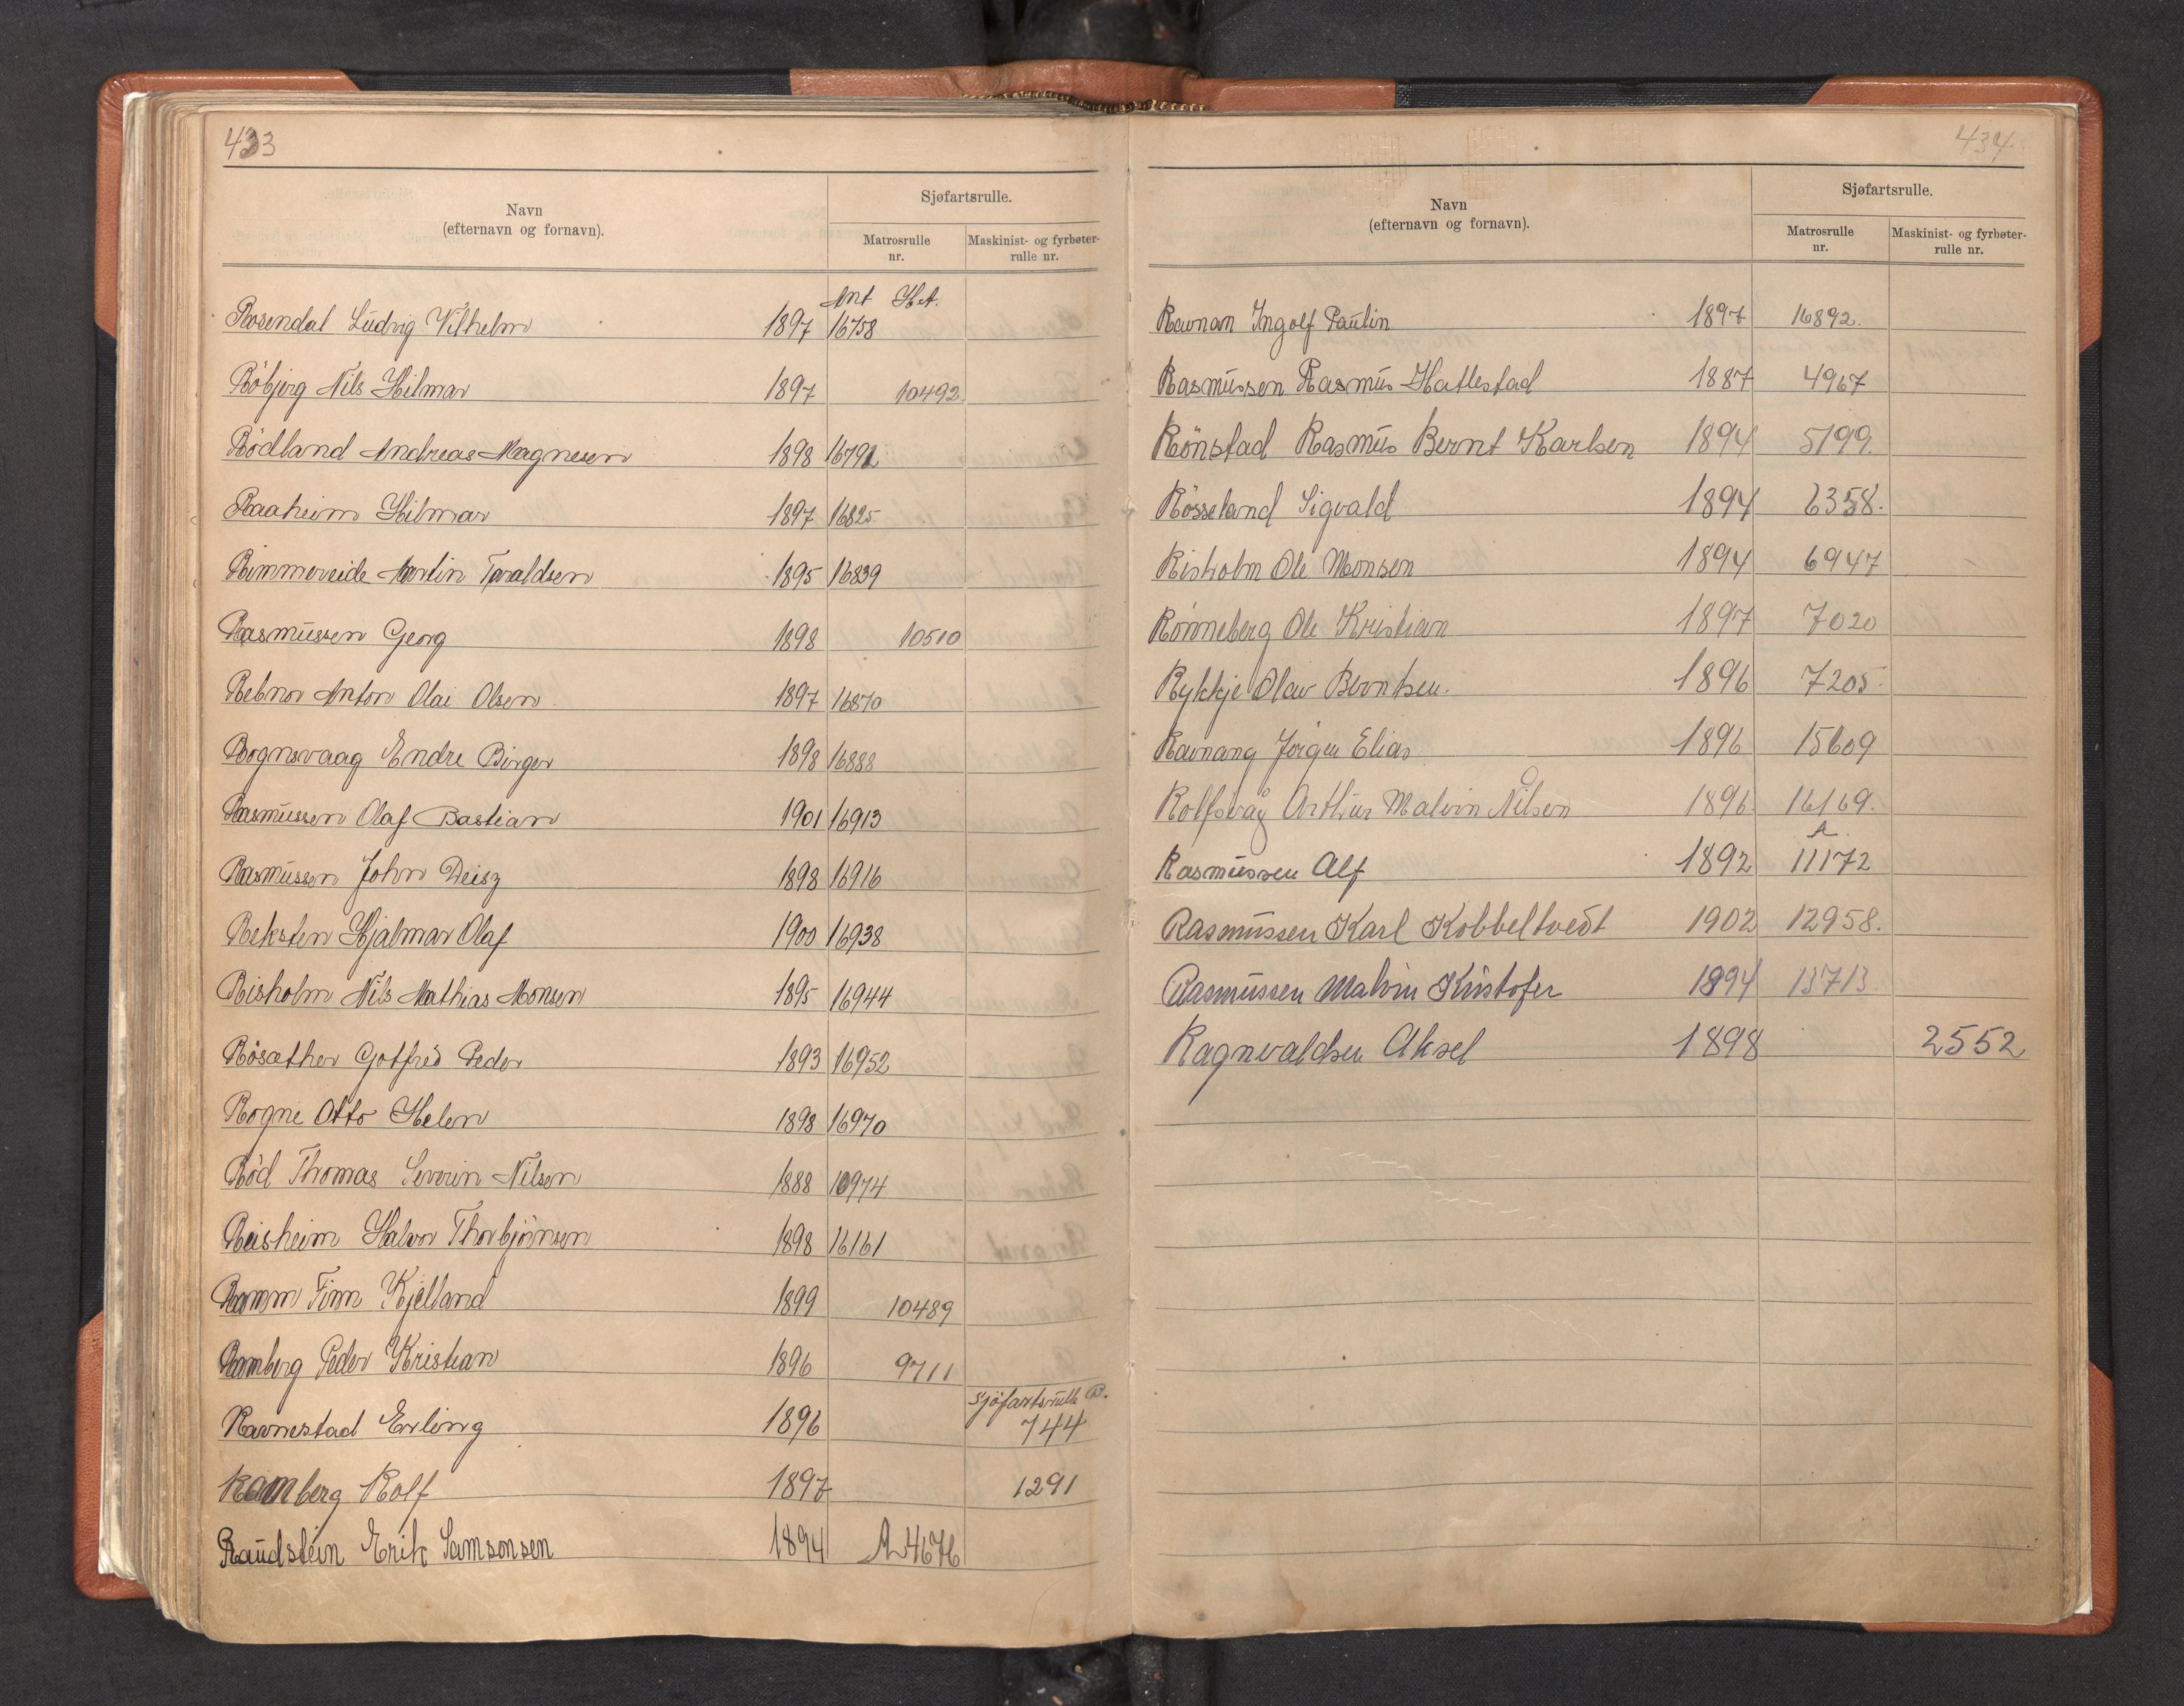 433
Navn
(efternavn og fornavn).
Sjøfartsrulle.
Matrosrulle
nr.
Maskinist- og fyrbøter-
rulle nr.
Ant Het.
Rosendal Ludvig Vilhelm 1897 16758
Röbjerg Nils Hilmar 1897 10492.
Rödland Andreas Magnesen 1898 16791
Raaheim Hilmar 1897 16825
Rimmereide Martin Taraldsen 1895 16839
Rasmussen Georg 1898 10510
Rebnor Anton Olai Olsen 1897 16870
Rognsvaag Endre Birger 1898 16888
Rasmussen Olaf Bastian 1901 16913
Rasmussen John Deisz 1898 16916
Reksten Hjalmar Olaf 1900 16938
Risholm Nils Mathias Monsen 1895 16944
Rösæther Gotfred Peder 1893 16952
Rogne Otto Helen 1898 16970
Röd Thomas Severin Nilsen 1888 16974
Reisheim Halvor Thorbjörnsen 1898 16161
Ramm Finn Kjelland 1899 10489
Ramberg Peder Kristian 1896 9711
Sjöfartsrulle B.
Ravnestad Erling 1896 744
Ramberg Rolf 1897 1291
Raudstein Erik Samsonsen 1894 A 4676
434
Navn
(efternavn og fornavn).
Sjøfartsrulle.
Matrosrulle
nr.
Maskinist- og fyrbøter-
rulle nr.
Ravnan Ingolf Paulin 1897 16892.
Rasmussen Rasmus Hatlestad 1887 4967
Rönstad Rasmus Bernt Karlsen 1894 5199.
Rösseland Sigvald 1894 6358.
Risholm Ole Monsen 1894 6947
Rönneberg Ole Kristian 1897 7020
Rykkje Olav Berntsen. 1896 7205.
Ravnang Jörgen Elias 1896 15609
Rolfsvåg Arthur Malvin Nilsen 1896 16169.
A
Rasmussen Alf 1892 11172
Rasmussen Karl Kobbeltvedt 1902 12958.
Rasmussen Malvin Kristofer 1894 13713.
Ragnvaldsen Aksel 1898 2552